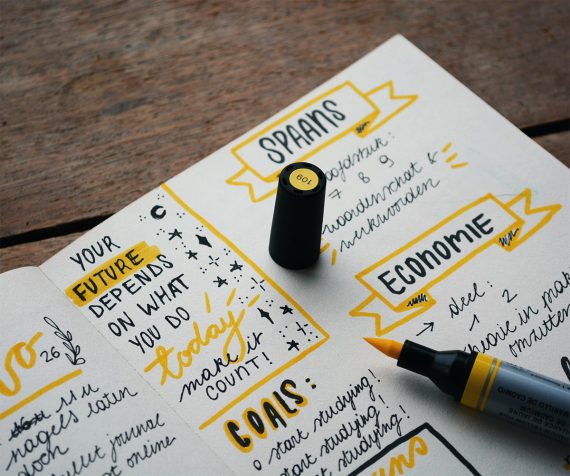 vo
26
nagels laten
journal
online
YOUR
FUTURE
DEPENDS
ON WHAT
YOU DO
today
make it
COUNT!
GOALS:
o start studying!
start studying!
start studying!
SPAANS
hoofdstuk:
7 8 9
woordenschat &
werkwoorden
ECONOMIE
deel:
→ 1 2
theorie in
109
DE CADMIO